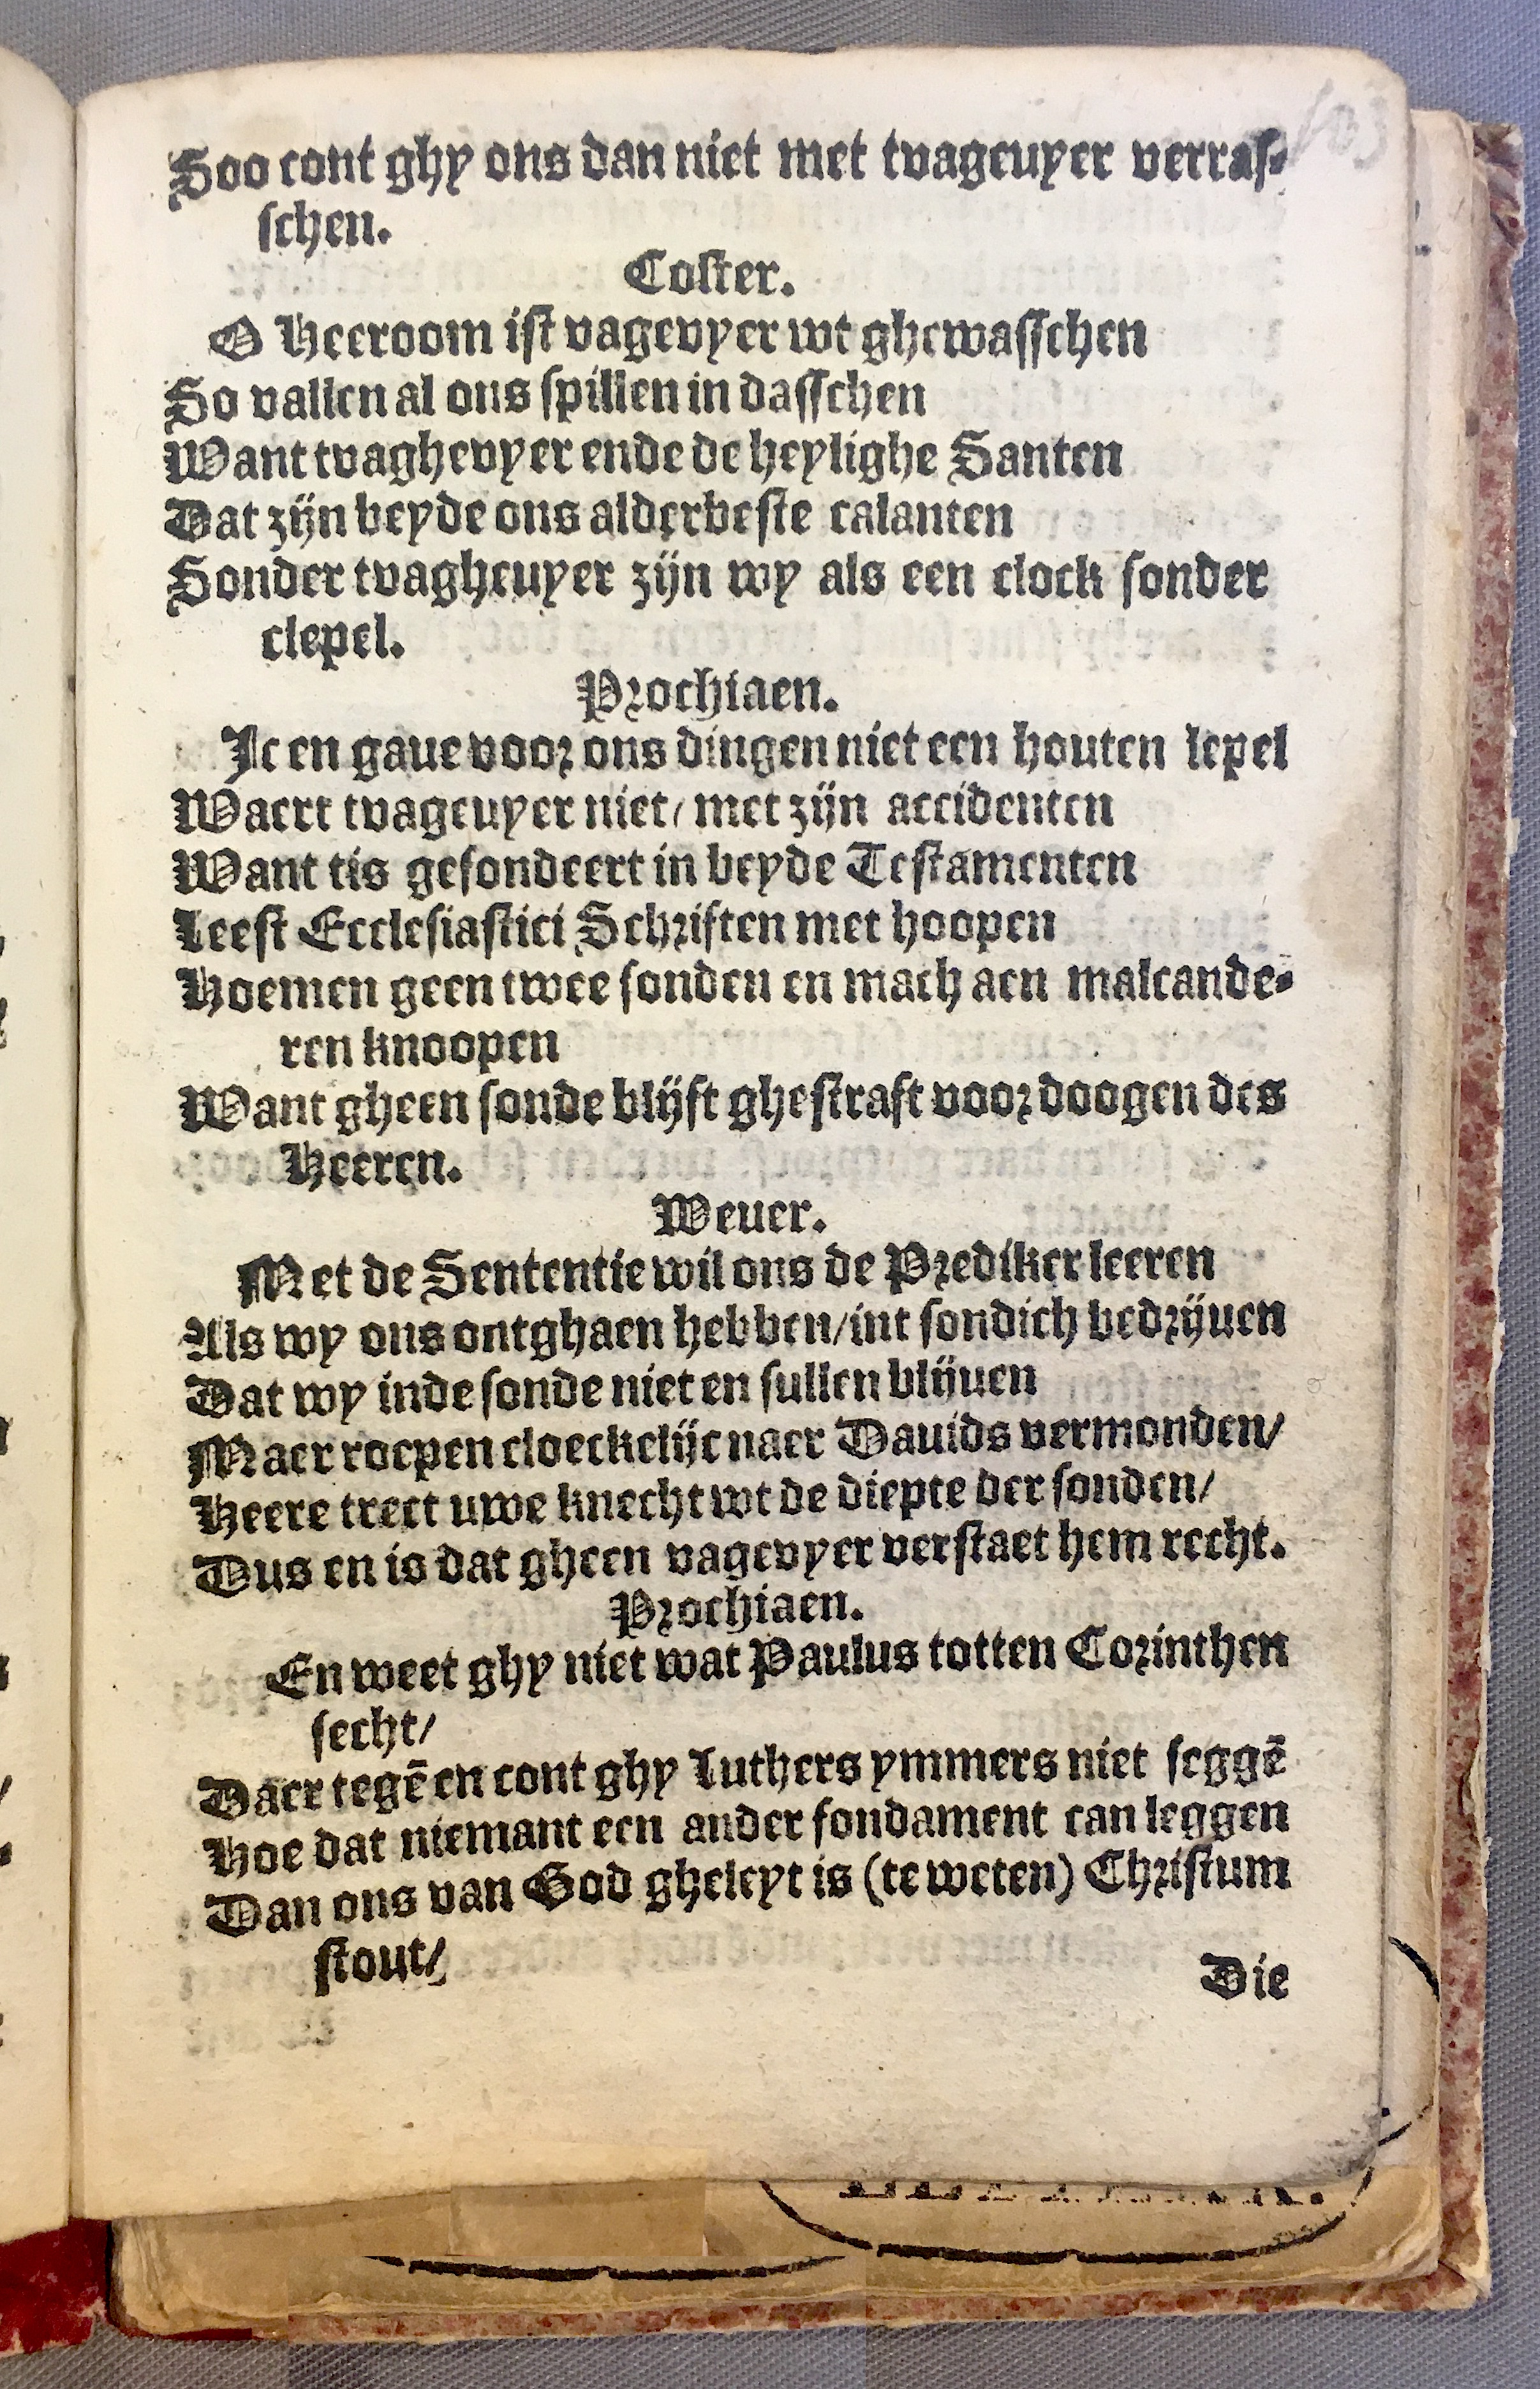 103
Soo cont ghy ons dan niet met tvageuyer verras-
schen.
Coster.
O Heeroom ist vagevyer wt ghewasschen
So vallen al ons spillen in dasschen
Want tvaghevyer ende de heylighe Santen
Dat zijn beyde ons alderbeste calanten
Sonder tvagheuyer zijn wy als een clock sonder
clepel.
Prochiaen.
Ic en gaue voor ons dingen niet een houten lepel
Waert tvageuyer niet/ met zijn accidenten
Want tis gefondeert in beyde Testamenten
Leest Ecclesiastici Schriften met hoopen
Hoemen geen twee sonden en mach aen malcande-
ren knoopen
Want gheen sonde blijft ghestraft voor doogen des
Heeren.
Weuer.
Met de Sententie wil ons de Prediker leeren
Als wy ons ontghaen hebben/int sondich bedrijuen
Dat wy inde sonde niet en sullen blijuen
Maer roepen cloeckelijc naer Dauids vermonden/
Heere trect uwe knecht wt de diepte der sonden/
Dus en is dat gheen vagevyer verstaet hem recht.
Prochiaen.
En weet ghy niet wat Paulus totten Corinthen
secht/
Daer tegē en cont ghy Luthers ymmers niet seggē
Hoe dat niemant een ander fondament can leggen
Dan ons van God gheleyt is (te weten) Christum
stout/
Die